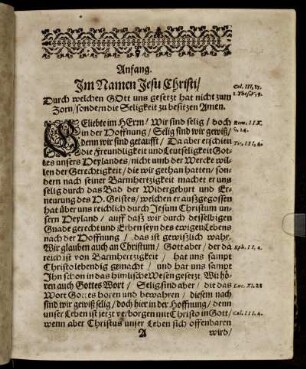 Anfang.
Im Namen Jesu Christi/
Durch welchen GOtt uns gesetzt hat nicht zum
Zorn/ sondern die Seligkeit zu besitzen Amen.
GEliebte im HErrn/ Wir sind selig/ doch
in der Hoffnung/ Selig sind wir gewiß/
denn wir sind getaufft/ Da aber erschien
die Freundligkeit und Leutseligkeit Got-
tes unsers Heylandes/ nicht umb der Wercke wil-
len der Gerechtigkeit/ die wir gethan hatten/ son-
dern nach seiner Barmhertzigkeit machet er uns
selig durch das Bad der Widergeburt und Er-
neurung des H. Geistes/ welchen er außgegossen
hat über uns reichlich durch Jesum Christum un-
sern Heyland/ auff daß wir durch desselbigen
Gnade gerecht und Erben seyn des ewigen Lebens
nach der Hoffnung/ das ist gewißlich wahr.
Wir glauben auch an Christum/ Gott aber/ der da
reich ist von Barmhertzigkeit/ hat uns sampt
Christo lebendig gemacht/ und hat uns sampt
Ihn schon in das himlische Wesen gesetzt. Wir hö-
ren auch Gottes Wort/ Selig sind aber/ die das
Wort Gottes hören und bewahren/ diesem nach
sind wir gewiß selig/ doch hier in der Hoffnung/ denn
unser Leben ist jetzt verborgen mit Christo in Gott/
wenn aber Christus unser Leben sich offenbaren
A wird/
Tit. III, 4.
Eph. II, 4.
Luc. XI. 28
Col. III, 4.